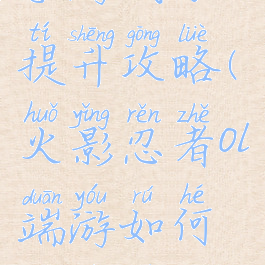 tí shēng gōng lüè
提升攻略(
huǒ yǐng rěn zhě
火影忍者ol
duān yóu rú hé
端游如何